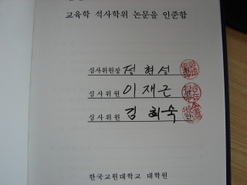 교육학 석사학위 논문을 인준함
심사위원장 정현성
심사위원 이재근
심사위원 김희숙
한국교원대학교 대학원